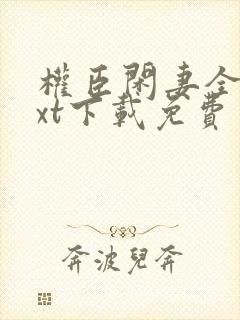 權臣閑妻全
xt下載免費
奔波兒奔